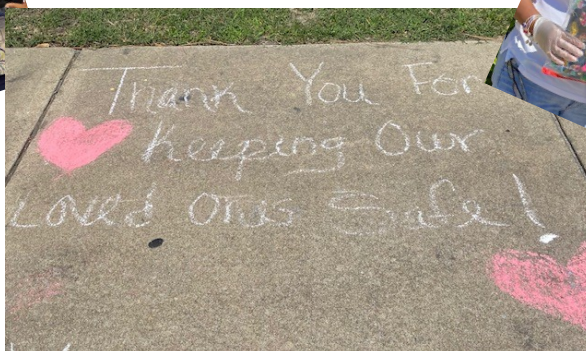 Thank You For
Keeping Our
Loved Ones Safe!